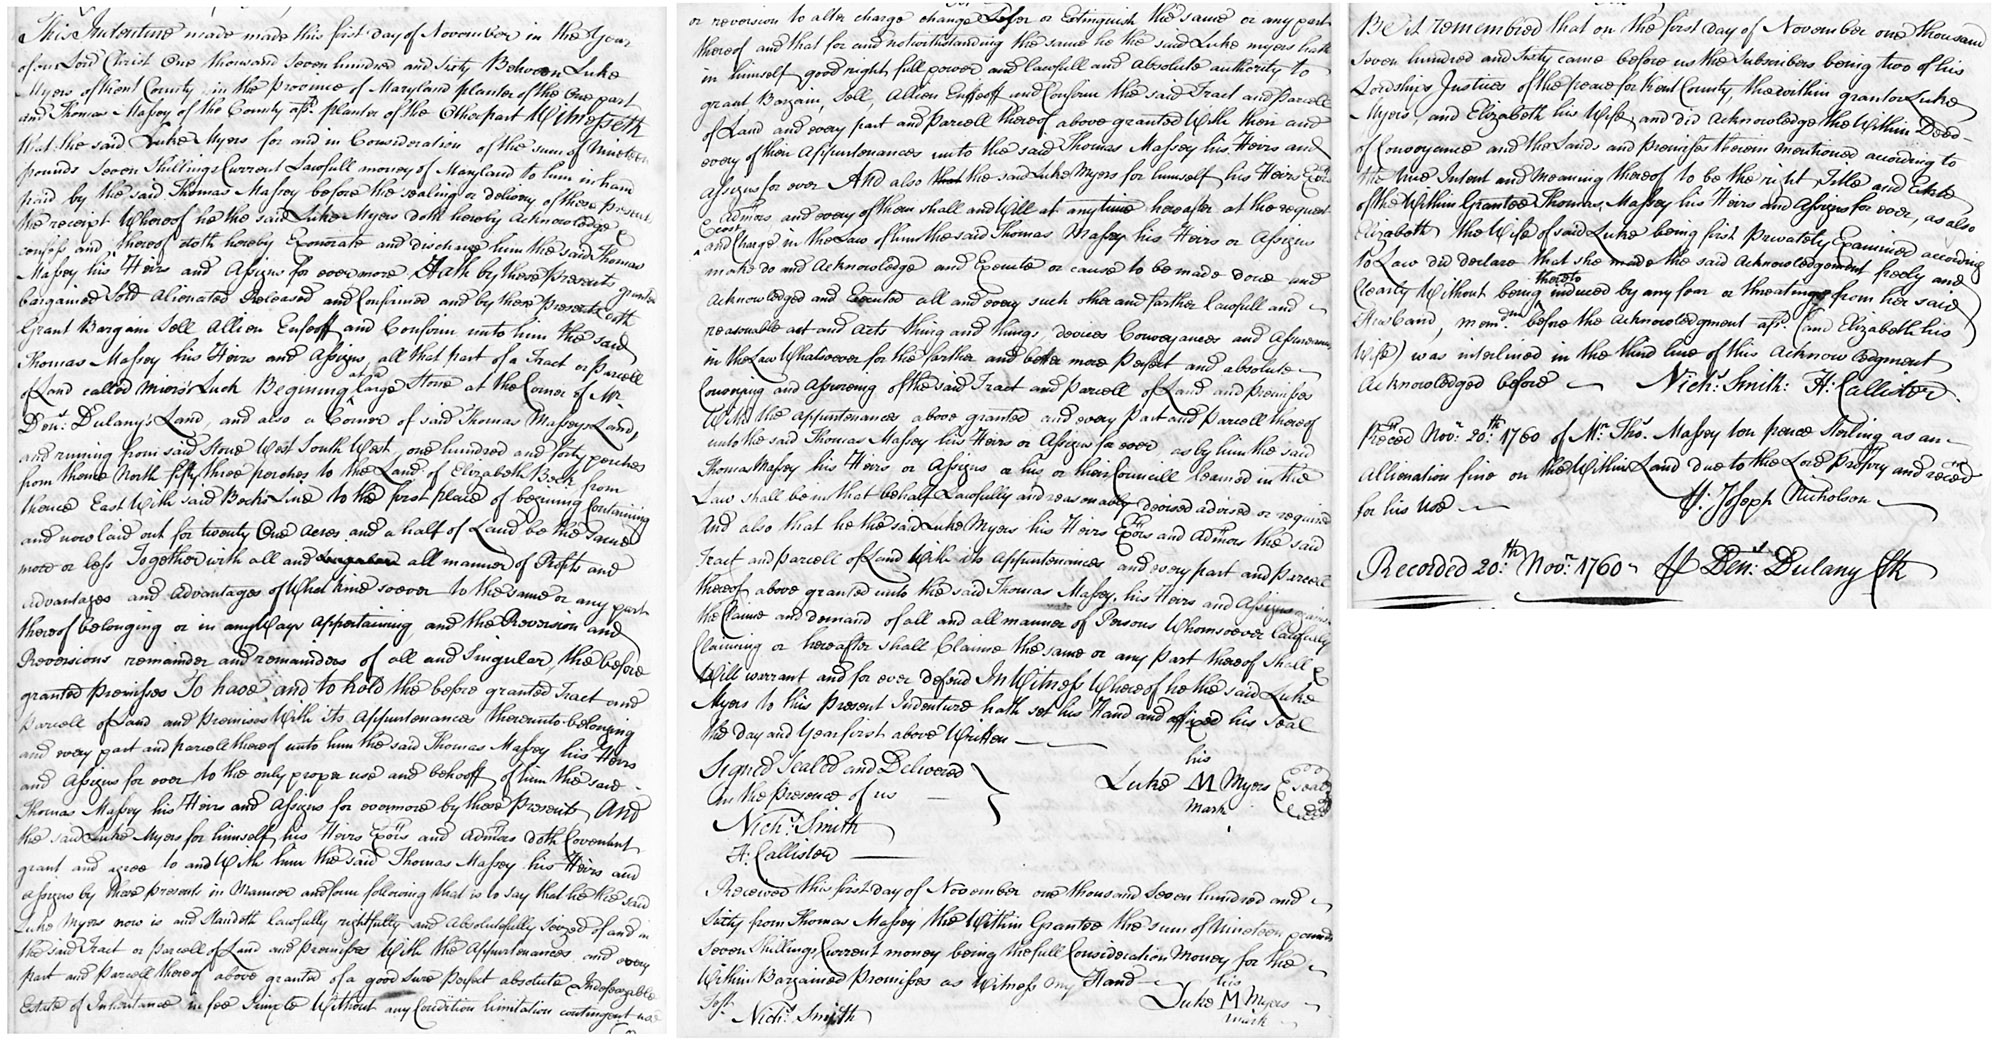 This Indenture made made this first day of November in the Year
of our Lord Christ One thousand Seven hundred and Sixty Between Luke
Myers of Kent County in the Province of Maryland planter of the One part
and Thomas Massey of the County afsd. planter of the Other part Witnesseth
that the said Luke Myers for and in Consideration of the sum of Nineteen
pounds Seven Shillings Current Lawfull money of Maryland to him in hand
paid by the said Thomas Massey before the sealing or delivery of these presents
the receipt Whereof he the said Luke Myers doth hereby Acknowledge &
confess and thereof doth hereby Exonerate and discharge him the said Thomas
Massey his Heirs and Assigns for evermore Hath by these presents granted
bargained Sold alienated Released and Confirmed and by these presents doth
Grant Bargain Sell Allien Enfeoff and Confirm unto him the said
Thomas Massey his Heirs and Assigns, all that part of a Tract or Parcell
of Land called Miers's Luck Begining at a large Stone at the Corner of Mr.
Denr. Dulany's Land, and also a Corner of said Thomas Massey's Land,
and runing from said Stone West South West, one hundred and forty perches
from thence North fifty three perches to the Land of Elizabeth Beck from
thence East With said Beck's Line to the first place of begining Containing
and now laid out for twenty One Acres and a half of Land be the same
more or less Together with all and all manner of Profits and
advantages and advantages of What kind soever to the same or any part
thereof belonging or in any Ways Appertaining, and the Reversion and
Reversions remainder and remainders of all and Singular the before
granted premisses To have and to hold the before granted Tract and
parcell of Land and premises With its Appurtenances thereunto belonging
and every part and parcell thereof unto him the said Thomas Massey his Heirs
and Assigns for ever to the only proper use and behooff of him the said
Thomas Massey his Heirs and Assigns for evermore by these Presents, And
the said Luke Myers for himself, his Heirs Exors and Admors doth Covenant
grant and agree to and With him the said Thomas Massey his Heirs and
assigns by these presents in Manner and form following that is to say that he the said
Luke Myers now is and Standeth lawfully rightfully and Absolutefully Seized of and in
the said Tract or parcell of Land and Premisses With the Appurtenances and every
part and Parcell thereof above granted of a good Sure Perfect absolute Indefeazable
Estate of Inheritance in fee Simple Without any Condition limitation contingent use
or reversion to alter charge change Lesser or Extinguish the same or any part
thereof and that for and notwithstanding the same he the said Luke myers hath
in himself good right full power and lawfull and Absolute authority to
grant Bargain, Sell, Allien Enfeoff and Confirm the said Tract and Parcell
of Land and every part and Parcell thereof above granted With their and
every of their Appurtenances unto the said Thomas Massey his Heirs and
Assigns for ever And also that the said Luke Myers for himself his Heirs Exors
Admors and every of them shall and Will at any time hereafter at the request
Cost
and Charge in the Law of him the said Thomas Massey his Heirs or Assigns
make do and Acknowledge and Execute or cause to be made done and
Acknowledged and Executed all and every such other and farther lawfull and
reasonable act and Acts thing and things, devices Conveyances and Assurances
in the Law Whatsoever for the farther and better more Perfect and absolute
Conveying and Assureing of the said Tract and Parcell of Land and Premisses
With the appurtenances above granted and every Part and Parcell thereof
unto the said Thomas Massey his Heirs or Assigns for ever as by him the said
Thomas Massey his Heirs or Assigns or his or their Councill learned in the
Law shall be in that behalf Lawfully and reasonably devised advised or required
And also that he the said Luke Myers his Heirs Exors and Admors the said
Tract and Parcell of Land With its Appurtenances and every part and Parcell
thereof above granted unto the said Thomas Massey, his Heirs and Assigns against
the Claime and demand of all and all manner of Persons Whomsoever lawfully
Claiming or hereafter shall Claime the same or any Part thereof shall &
Will warrant and for ever defend In Witness Whereof he the said Luke
Myers to this Present Indenture hath set his Hand and affixed his Seal
the day and Year first above Written
Signed Sealed and Delivered
In the Presence of us
his
Luke M Myers Seal
mark
Nichs. Smith
H: Callister
Received this first day of November one thousand Seven hundred and
Sixty from Thomas Massey the Within Grantee the sum of Nineteen pounds
Seven Shillings Current money being the full Consideration Money for the
Within Bargained Premisses as Witness my Hand
his
Luke M Myers
mark
Test.
Nichs. Smith
Be it remembred that on the first day of November one thousand
Seven hundred and Sixty came before us the Subscribers being two of his
Lordship's Justices of the peace for Kent County, the within grantor Luke
Myers, and Elizabeth his Wife, and did Acknowledge the Within Deed
of Conveyance and the Lands and premisses therein mentioned according to
the true Intent and Meaning thereof to be the right Title and Estate
of the Within Grantee Thomas Massey his Heirs and Assigns for ever, as also
Elizabeth the Wife of said Luke being first Privately Examined according
to Law did declare that she made the said Acknowledgement freely and
Clearly Without being thereto induced by any fear or threatings from her said
Husband, memdm. before the Acknowledgment afsd. (and Elizabeth his
Wife) was interlined in the third line of this Acknowledgment
Acknowledged before Nichs. Smith: H: Callister
Reced Novr. 20th. 1760 of Mr. Thos. Massey ten pence Sterling as an
Allienation fine on the Within Land due to the Lord Propry and reced
for his use
Pr. Joseph Nicholson
Recorded 20th. Novr. 1760 Pr Denr. Dulany Clk